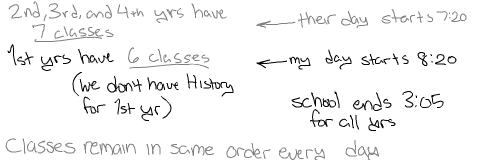 2nd, 3rd, and 4th yrs have
7 classes
← their day starts 7:20
1st yrs have 6 classes
(we don't have History
for 1st yr)
← my day starts 8:20
school ends 3:05
for all yrs
Classes remain in same order every day